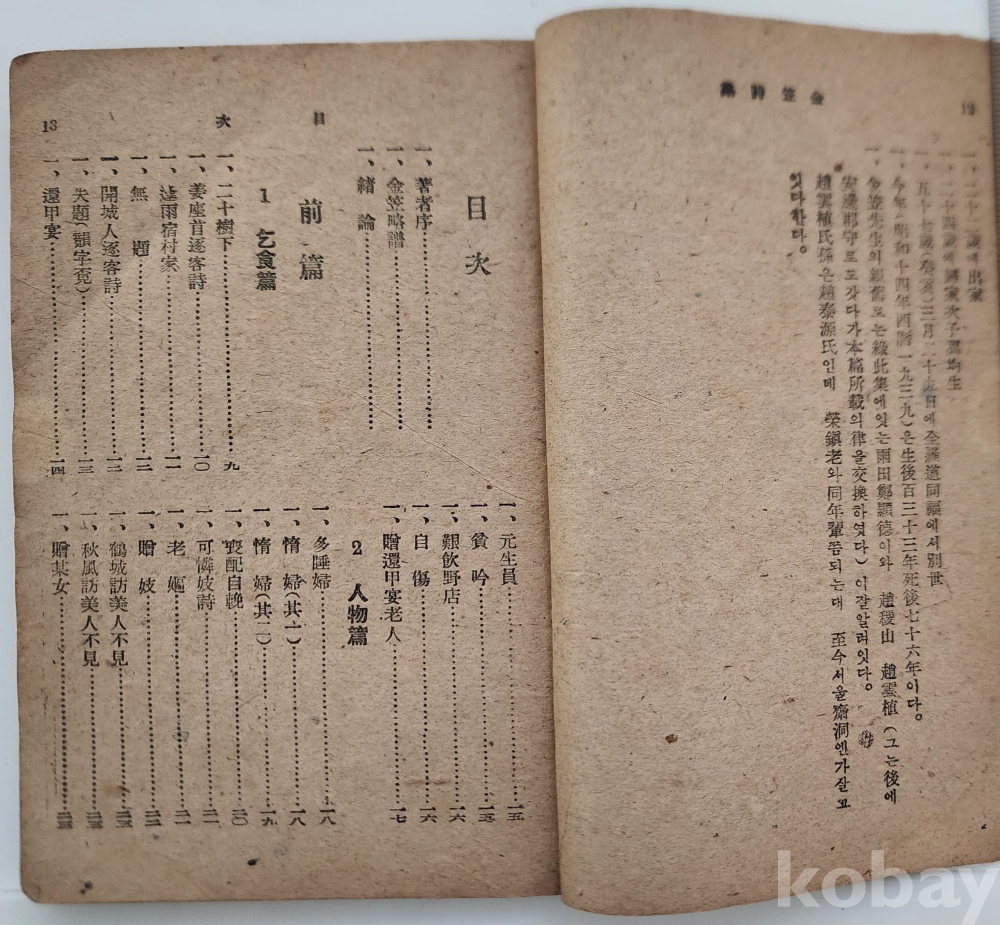 金笠詩集
12
一、二十二歲에出家
一、二十四歲에國家次子翼均生
一、五十七歲(癸亥)三月二十九日에全羅道同福에서別世
今年(昭和十四年西曆一九三九)은生後百三十三年死後七十六年이다。
一、金笠先生의親舊로는綠此集에잇는雨田鄭顯德이와 趙稷山 趙雲植(그는後에
安邊郡守로도갓다가本篇所載의律을交換하엿다)이잘알려잇다。
趙雲植氏孫은趙泰源氏인데 榮鎭老와同年輩쯤되는대 至今서울齋洞엔가잘고
잇다한다。
目次
13
目次
一、著者序
一、金笠略譜
一、緖論
前篇
1 乞食篇
一、二十樹下 九
一、姜座首逐客詩 一〇
一、逢雨宿村家 一一
一、無題 一二
一、開城人逐客詩 一二
一、失題(韻字覓) 一三
一、還甲宴 一四
一、元生員 一五
一、貧吟 一五
一、艱飮野店 一六
一、自傷 一六
一、贈還甲宴老人 一七
2 人物篇
一、多睡婦 一八
一、惰婦(其一) 一八
一、惰婦(其二) 一九
一、喪配自輓 二〇
一、可憐妓詩 二一
一、老嫗 二一
一、贈妓 二二
一、鶴城訪美人不見 二三
一、秋風訪美人不見 二三
一、贈某女 二三
kobay